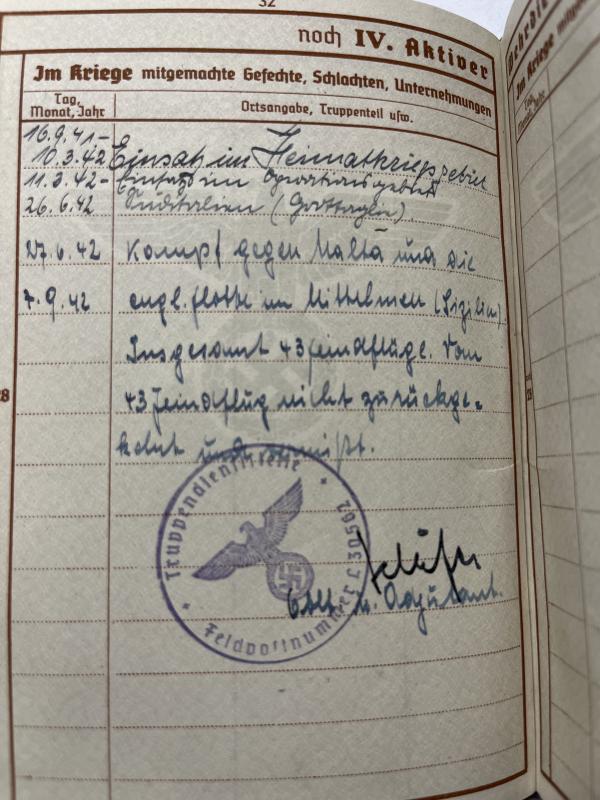 32
noch IV. Aktiver
Im Kriege mitgemachte Gefechte, Schlachten, Unternehmungen
Tag, Monat, Jahr
Ortsangabe, Truppenteil usw.
16.9.41-
10.3.42 Einsatz im Heimatkriegsgebiet
11.3.42- Einsatz im Operationsgebiet
26.6.42 Süditalien
27.6.42 Kampf gegen Malta und die
7.9.42 engl. Flotte im Mittelmeer (Sizilien).
Insgesamt 43 Feindflüge. Vom
43 Feindflug nicht zurückge-
kehrt und vermißt.
Truppendienststelle
Feldpostnummer L 30562
Oblt. u. Adjutant.
28
Im Kriege mitgem
Tag,
Monat, Jahr